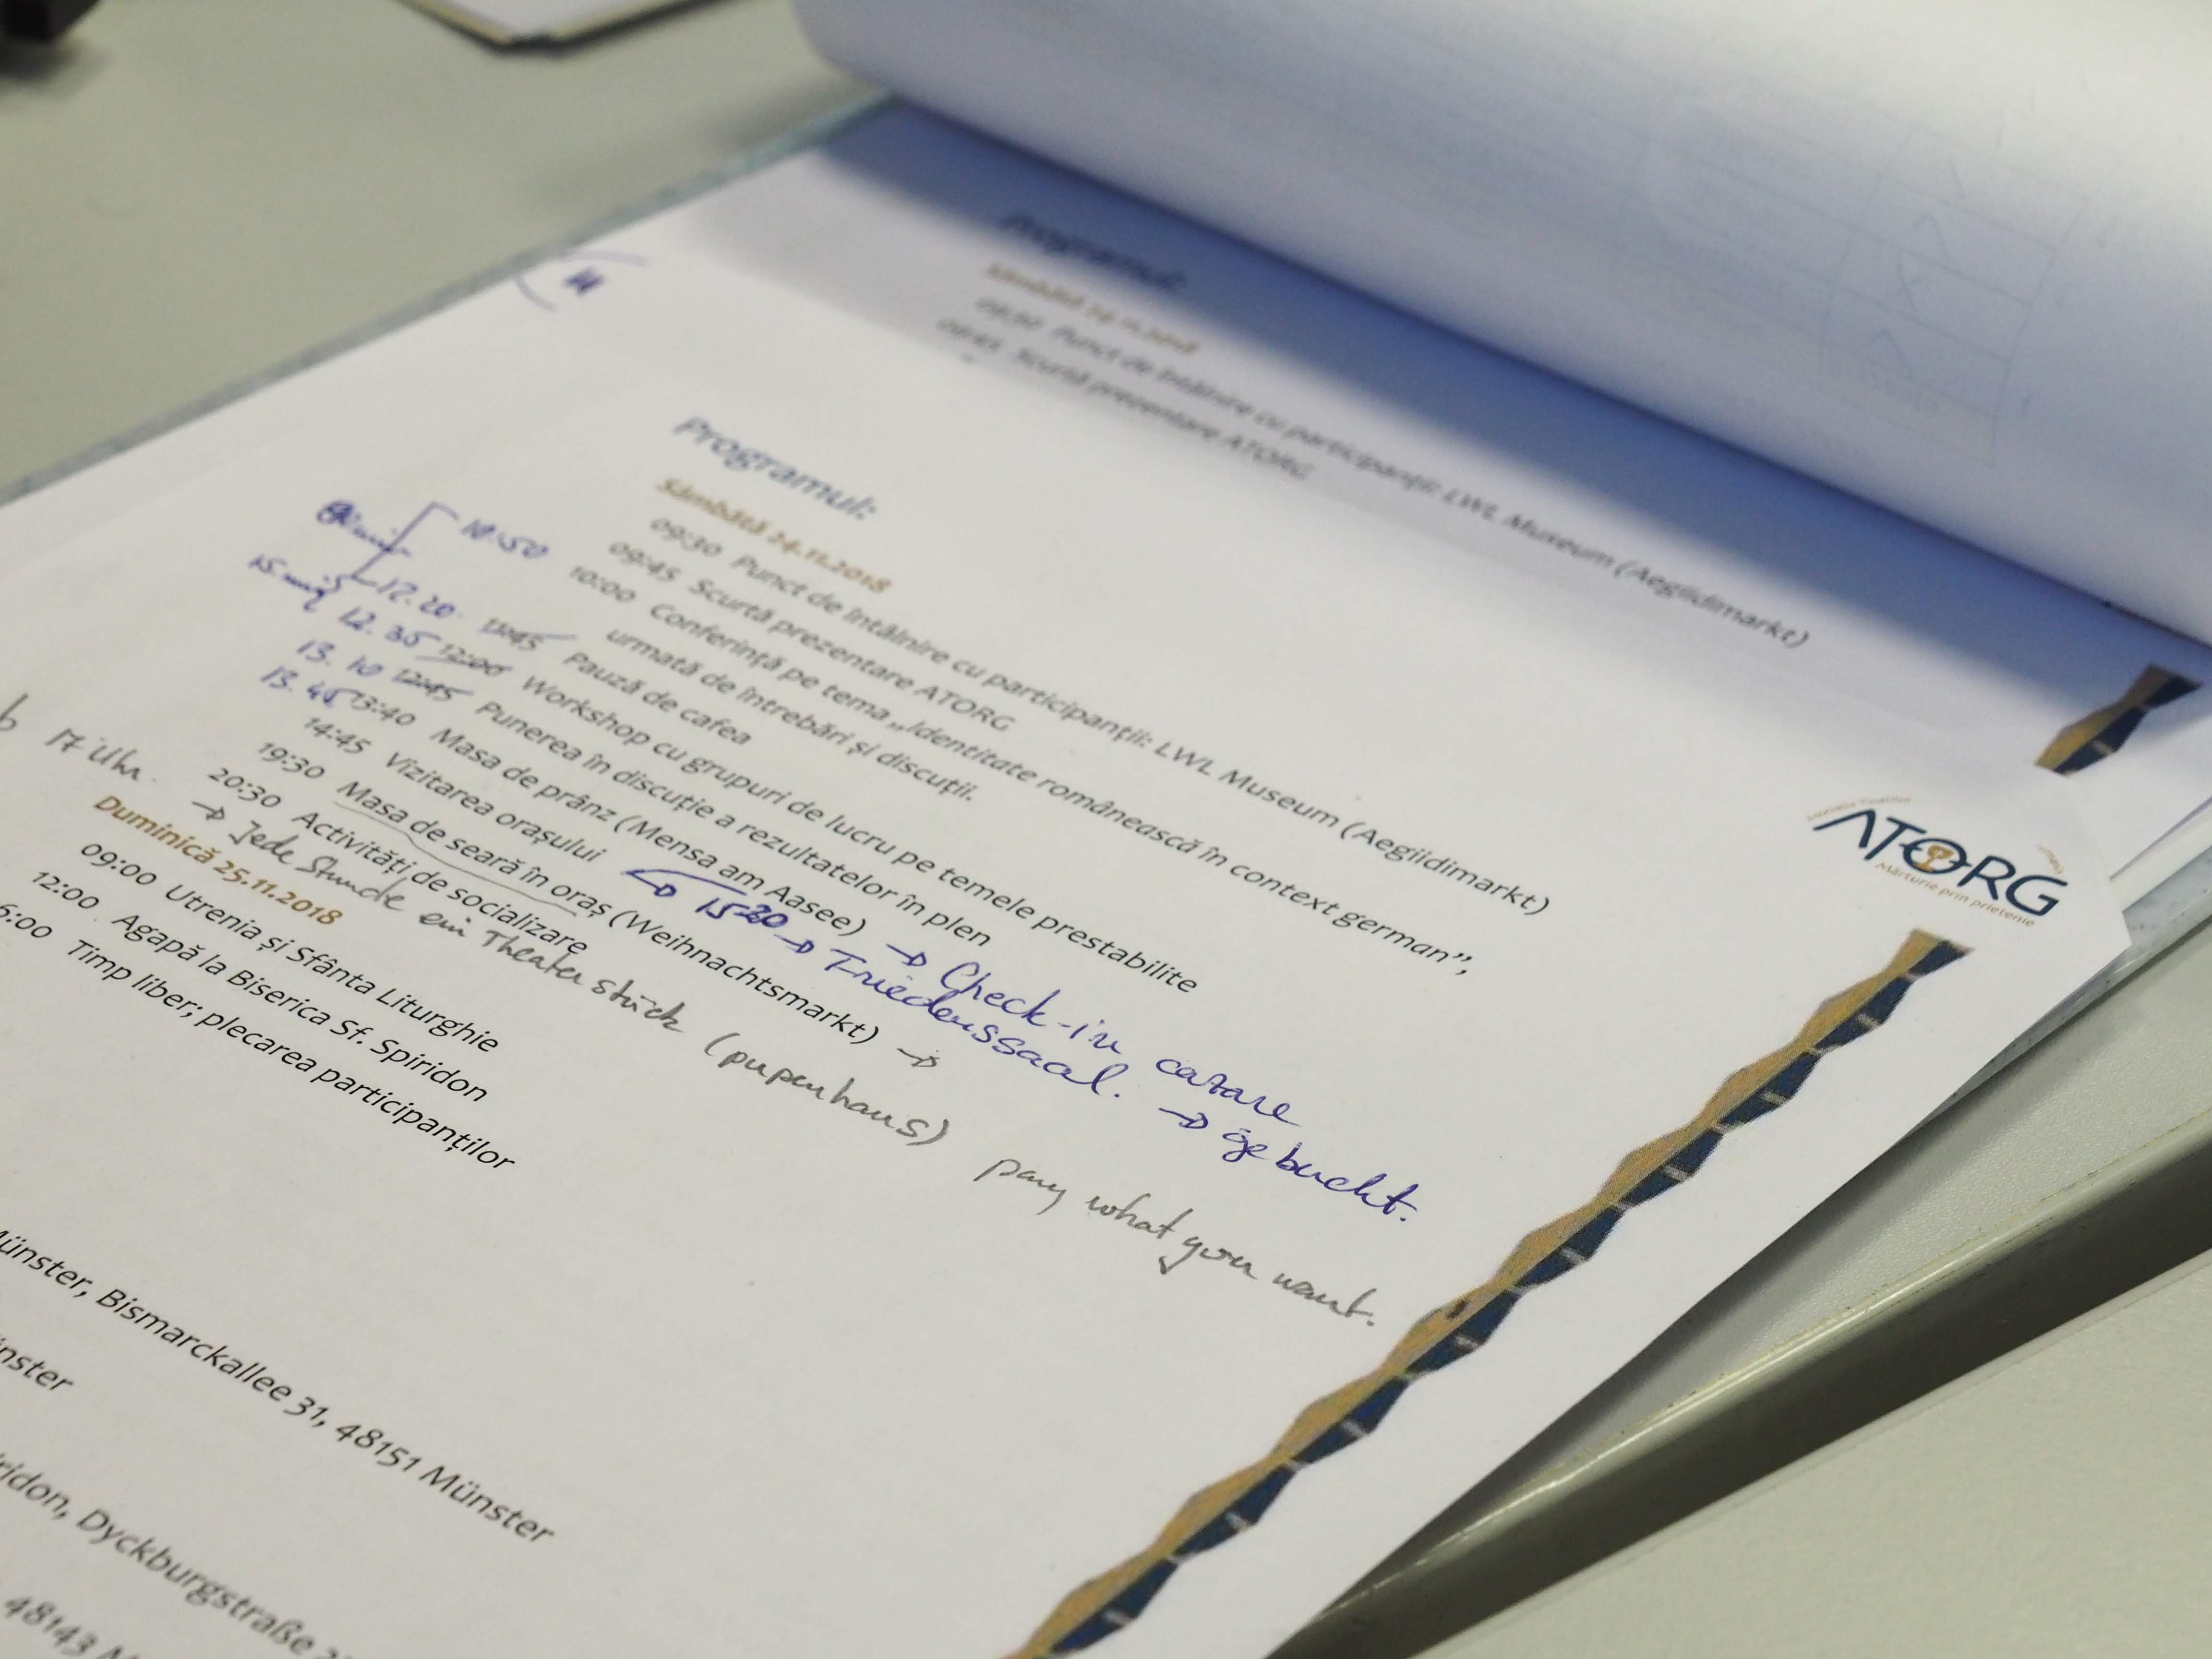 Programul:
Sâmbătă 24.11.2018
09:30 Punct de întâlnire cu participanții: LWL Museum (Aegiidimarkt)
09:45 Scurtă prezentare ATORG
Programul:
Sâmbătă 24.11.2018
09:30 Punct de întâlnire cu participanții: LWL Museum (Aegiidimarkt)
09:45 Scurtă prezentare ATORG
10:50 10:00 Conferință pe tema „Identitate românească în context german”,
urmată de întrebări și discuții.
12.20 11:45 Pauză de cafea
12.35 12:00 Workshop cu grupuri de lucru pe temele prestabilite
13.10 12:45 Punerea în discuție a rezultatelor în plen
13.45 13:40 Masa de prânz (Mensa am Aasee) → Check-in cazare
14:45 Vizitarea orașului 15:30 → Friedenssaal. → gebucht.
19:30 Masa de seară în oraș (Weihnachtsmarkt) →
20:30 Activități de socializare
17 Uhr. → Jede Stunde ein Theaterstück (pupenhaus) pay what you want.
Duminică 25.11.2018
09:00 Utrenia și Sfânta Liturghie
12:00 Agapă la Biserica Sf. Spiridon
6:00 Timp liber; plecarea participanților
ünster, Bismarckallee 31, 48151 Münster
nster
ridon, Dyckburgstraße
48143 M
ATORG
Mărturie prin prietenie